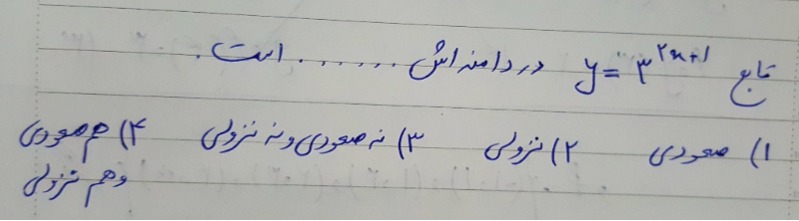 تابع y = ۳^{۲x+۱} در دامنه‌اش ...... است.
۱) صعودی ۲) نزولی ۳) نه صعودی و نه نزولی ۴) هم صعودی
و هم نزولی